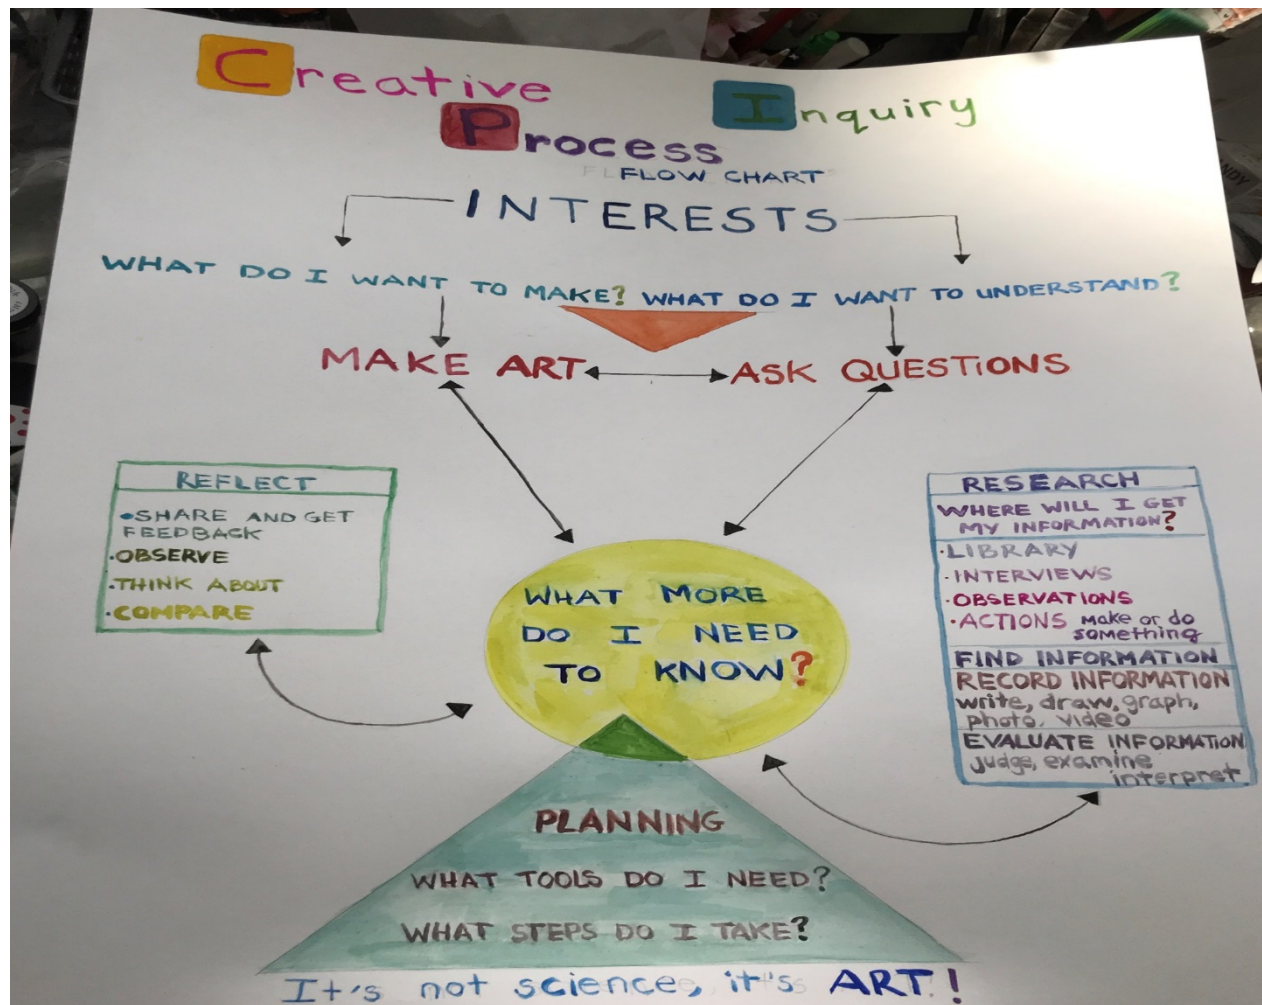 Creative
Inquiry
Process
FLOW CHART
INTERESTS
WHAT DO I WANT TO MAKE? WHAT DO I WANT TO UNDERSTAND?
MAKE ART
ASK QUESTIONS
REFLECT
•SHARE AND GET
FEEDBACK
•OBSERVE
•THINK ABOUT
•COMPARE
RESEARCH
WHERE WILL I GET
MY INFORMATION?
•LIBRARY
•INTERVIEWS
•OBSERVATIONS
•ACTIONS make or do
something
FIND INFORMATION
RECORD INFORMATION
write, draw, graph,
photo, video
EVALUATE INFORMATION
judge, examine
interpret
WHAT MORE
DO I NEED
TO KNOW?
PLANNING
WHAT TOOLS DO I NEED?
WHAT STEPS DO I TAKE?
It's not science, it's ART!